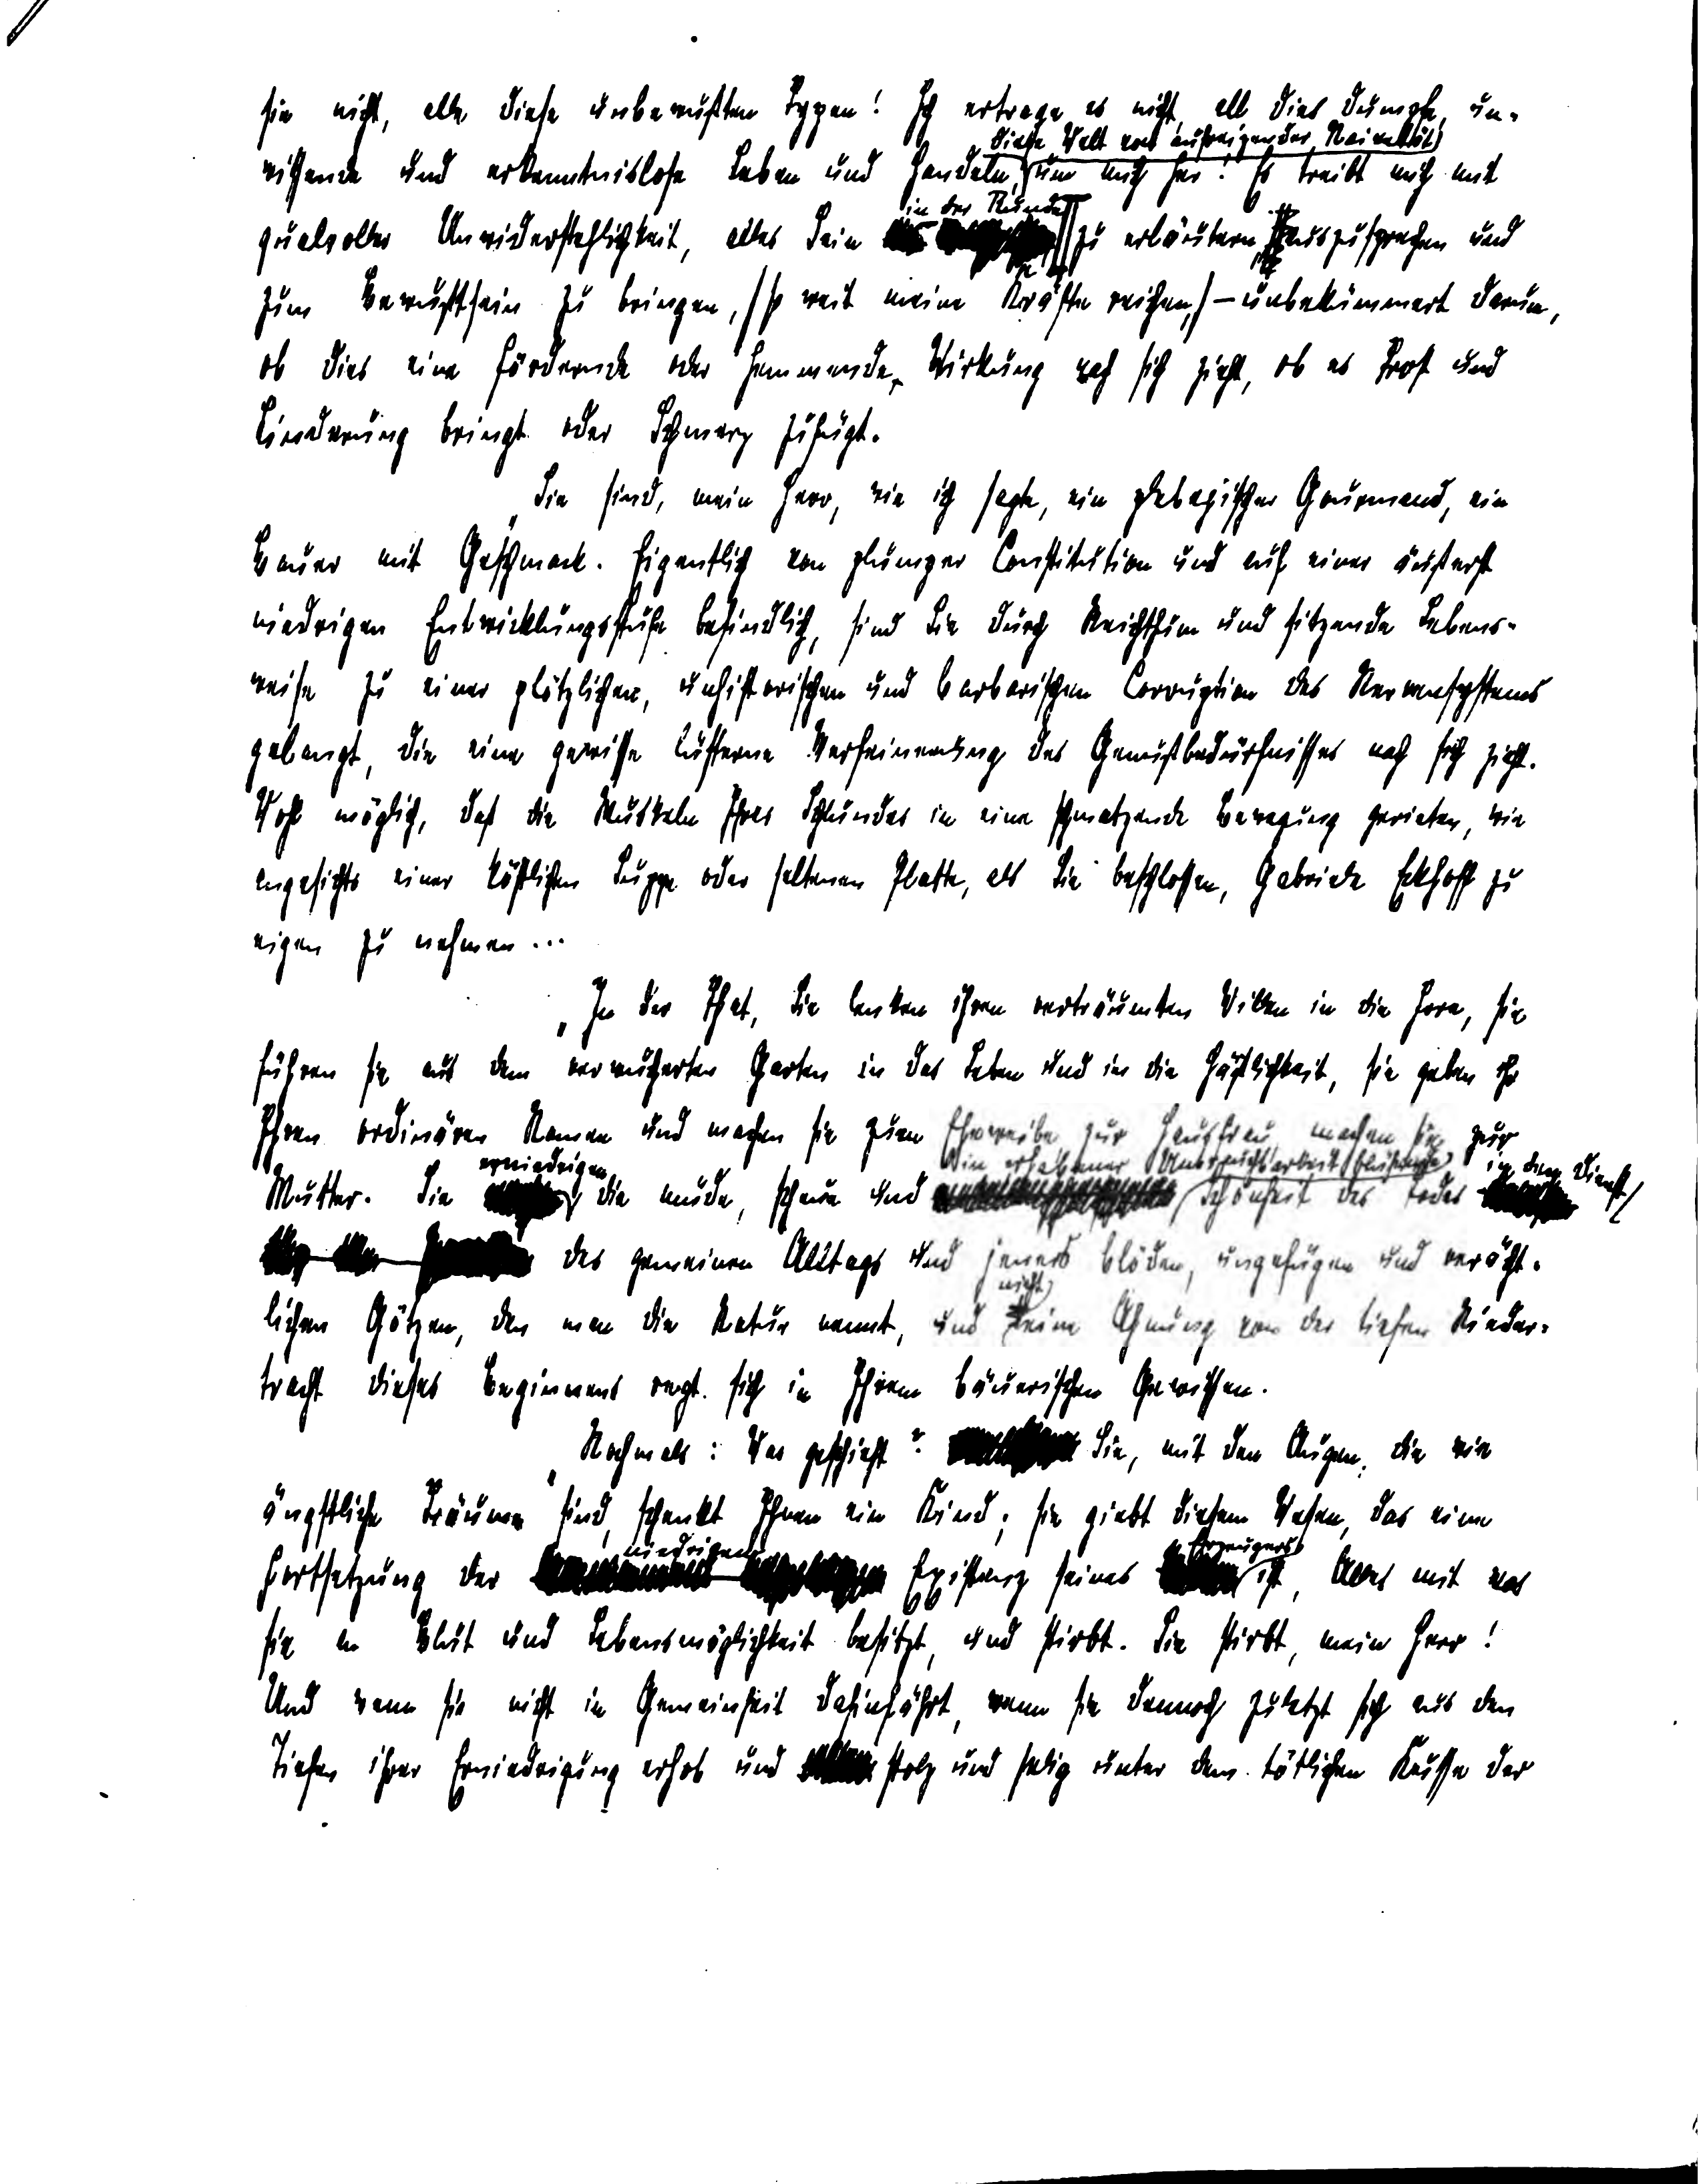 sie nicht, alle diese unbewußten Typen! Ich ertrage es nicht, all dies dumpfe, un-
diese Welt von aufreizender Naivetät
wissende und erkenntnislose Leben und Handeln, um mich her! Es treibt mich mit
in der Runde
qualvoller Unwiderstehlichkeit, alles Sein zu erläutern, auszusprechen und
zum Bewußtsein zu bringen, so weit meine Kräfte reichen, – unbekümmert darum,
ob dies eine fördernde oder hemmende Wirkung nach sich zieht, ob es Trost und
Linderung bringt oder Schmerz zufügt.
„Sie sind, mein Herr, wie ich sagte, ein plebejischer Gourmand, ein
Bauer mit Geschmack. Eigentlich von plumper Constitution und auf einer äußerst
niedrigen Entwicklungsstufe befindlich, sind Sie durch Reichthum und sitzende Lebens-
weise zu einer plötzlichen, unhistorischen und barbarischen Corruption des Nervensystems
gelangt, die eine gewisse lüsterne Verfeinerung des Genußbedürfnisses nach sich zieht.
Wohl möglich, daß die Muskeln Ihres Schlundes in eine schmatzende Bewegung gerieten, wie
angesichts einer köstlichen Suppe oder seltenen Platte, als Sie beschlossen, Gabriele Eckhoff zu
eigen zu nehmen ...
„In der That, Sie lenken ihren verträumten Willen in die Irre, sie
führen sie aus dem verwucherten Garten in das Leben und in die Häßlichkeit, sie geben ihr
Ihren ordinären Namen und machen sie zum Eheweibe, zur Hausfrau, machen sie zur
erniedrigen in erhabener Unbrauchbarkeit blühende in den Dienst
Mutter. Sie die müde, scheue und Schönheit des Todes
des gemeinen Alltags und jenes blöden, ungefügen und verächt-
nicht
lichen Götzen, den man die Natur nennt, und eine Ahnung von der tiefen Nieder-
tracht dieses Beginnens regt sich in Ihrem bäuerischen Gewissen.
„Nochmals: Was geschieht? Sie, mit den Augen, die wie
ängstliche Träume sind, schenkt Ihnen ein Kind; sie giebt diesem Wesen, das eine
niedrigen Erzeugers
Fortsetzung der Existenz seines ist, Alles mit was
sie an Blut und Lebensmöglichkeit besitzt, und stirbt. Sie stirbt, mein Herr!
Und wenn sie nicht in Gemeinheit dahinfährt, wenn sie dennoch zuletzt sich aus den
Tiefen ihrer Erniedrigung erhob und stolz und selig unter dem tötlichen Kusse der